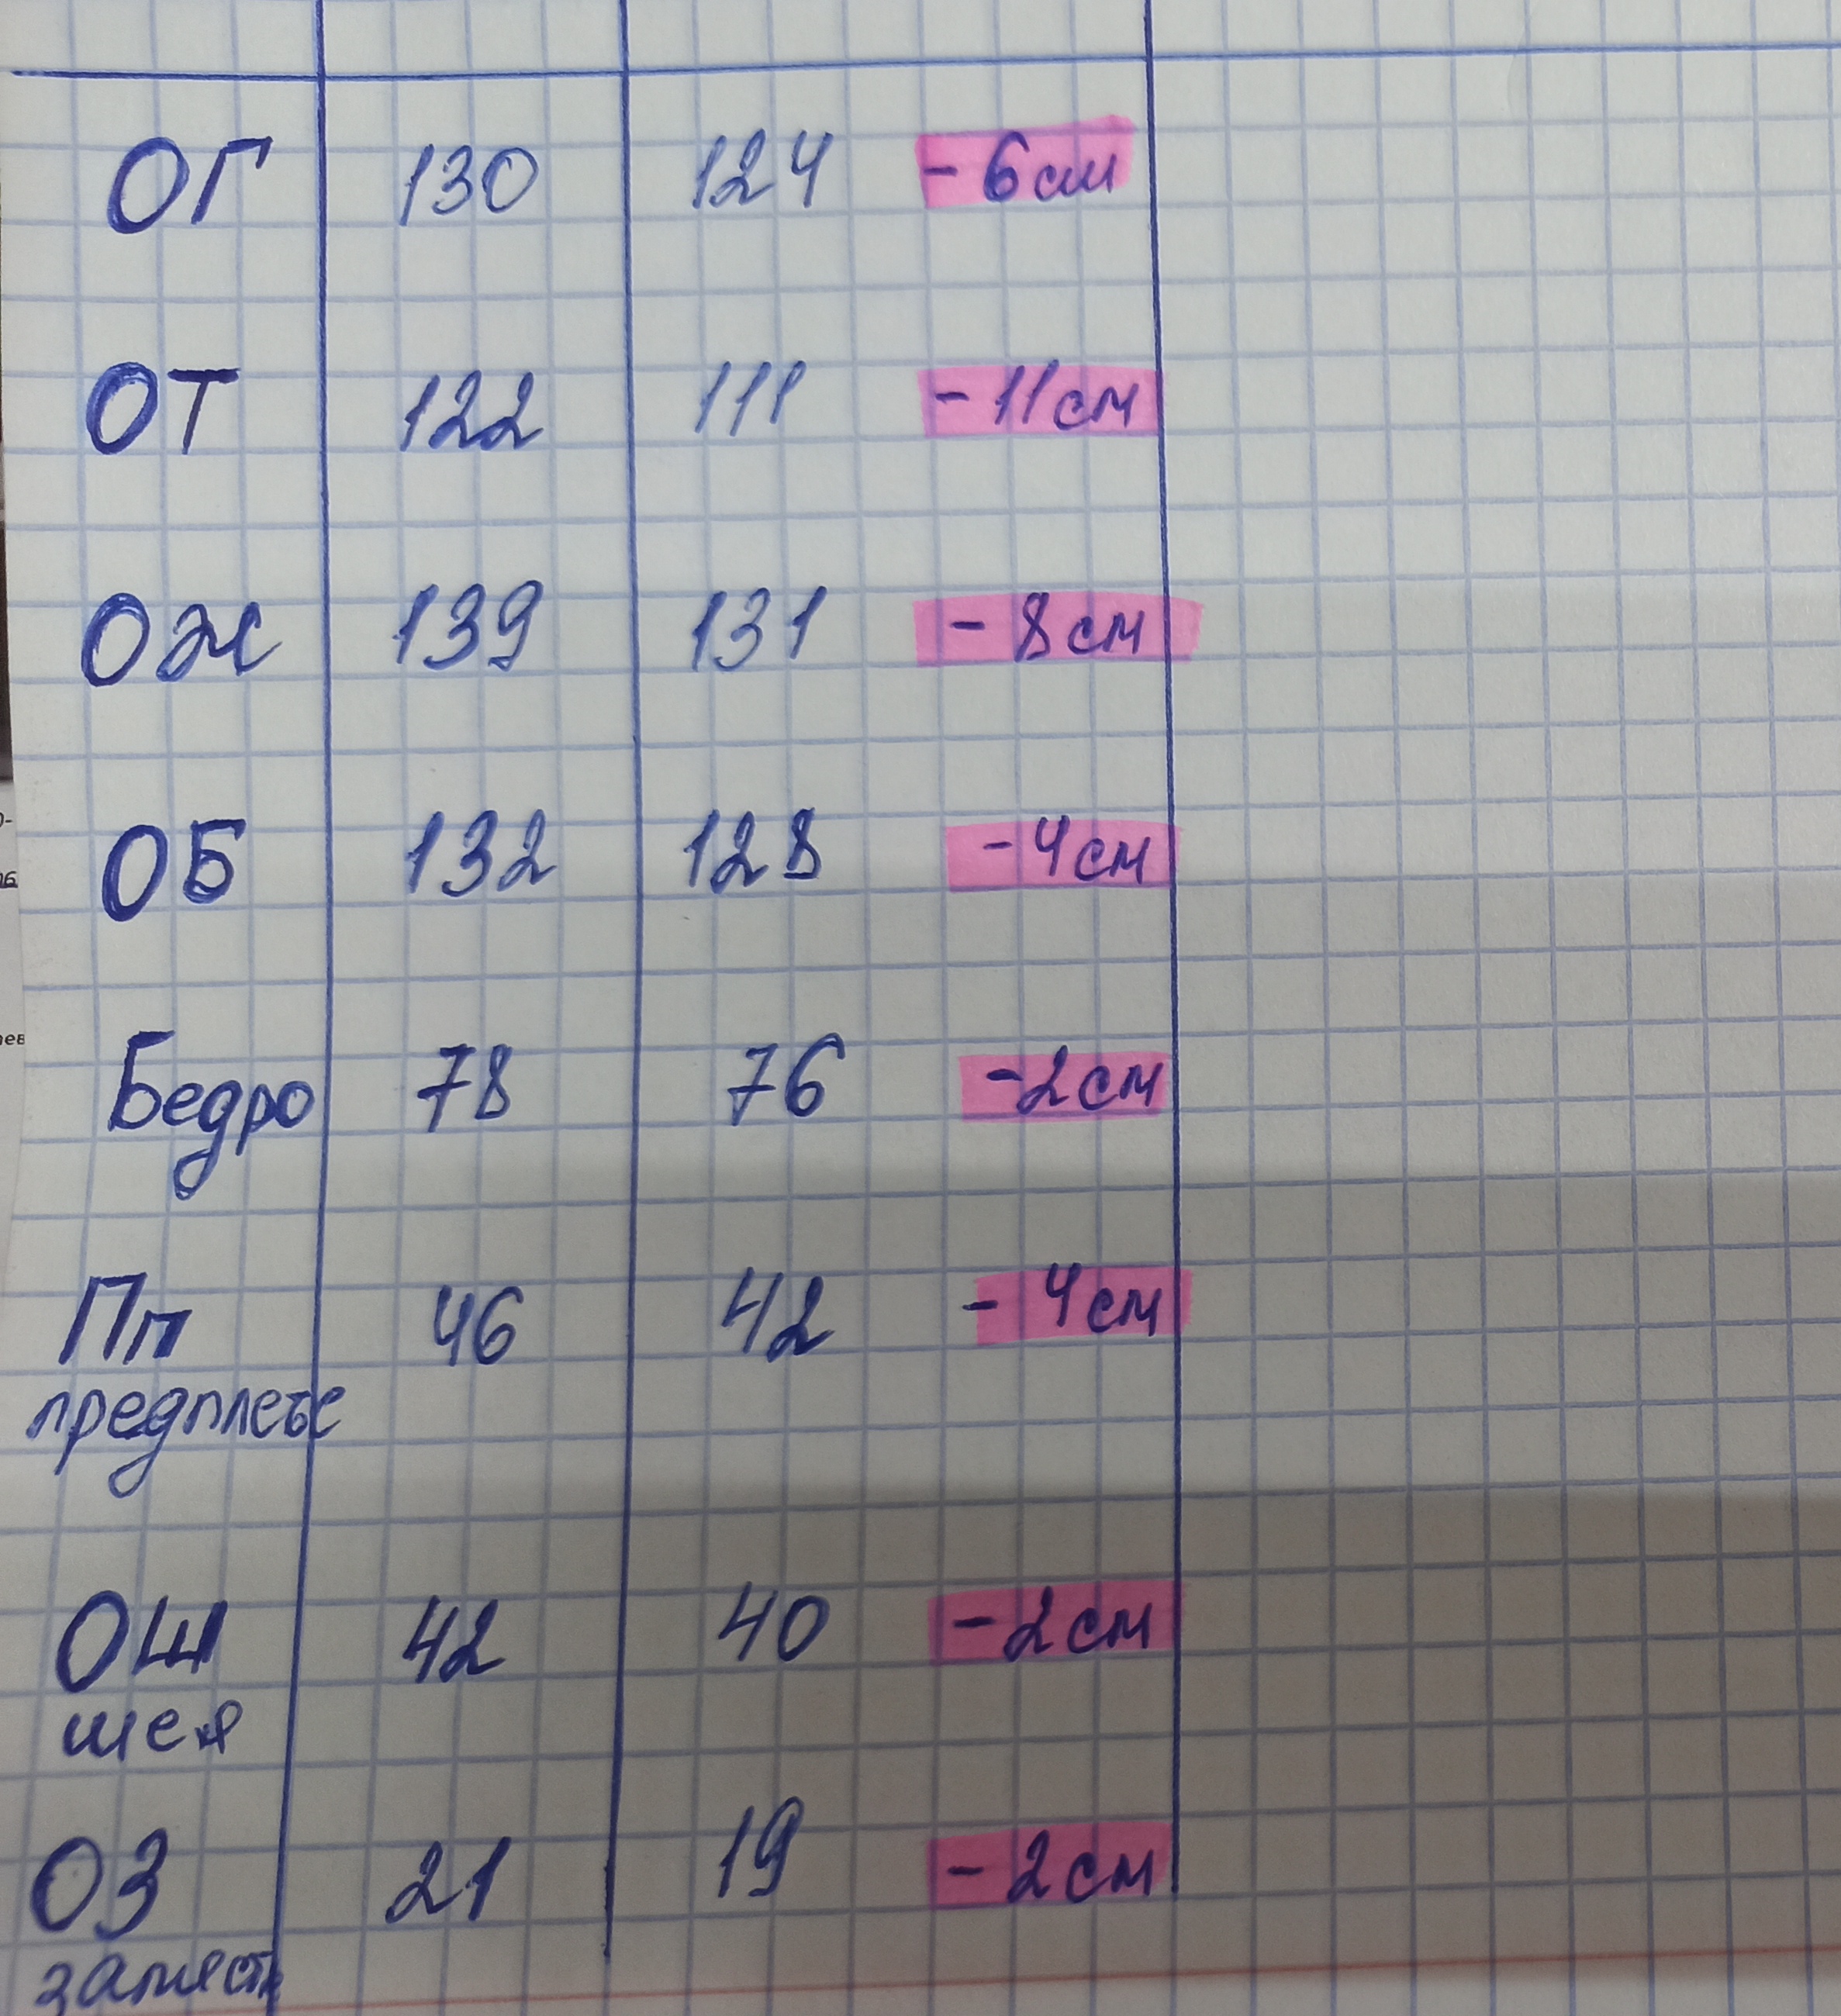 ОГ 130 124 - 6см
ОТ 122 111 - 11см
ОЖ 139 131 - 8см
ОБ 132 128 - 4см
Бедро 78 76 - 2см
Пп 46 42 - 4см
предплече
ОШ 42 40 - 2см
шея
ОЗ 21 19 - 2см